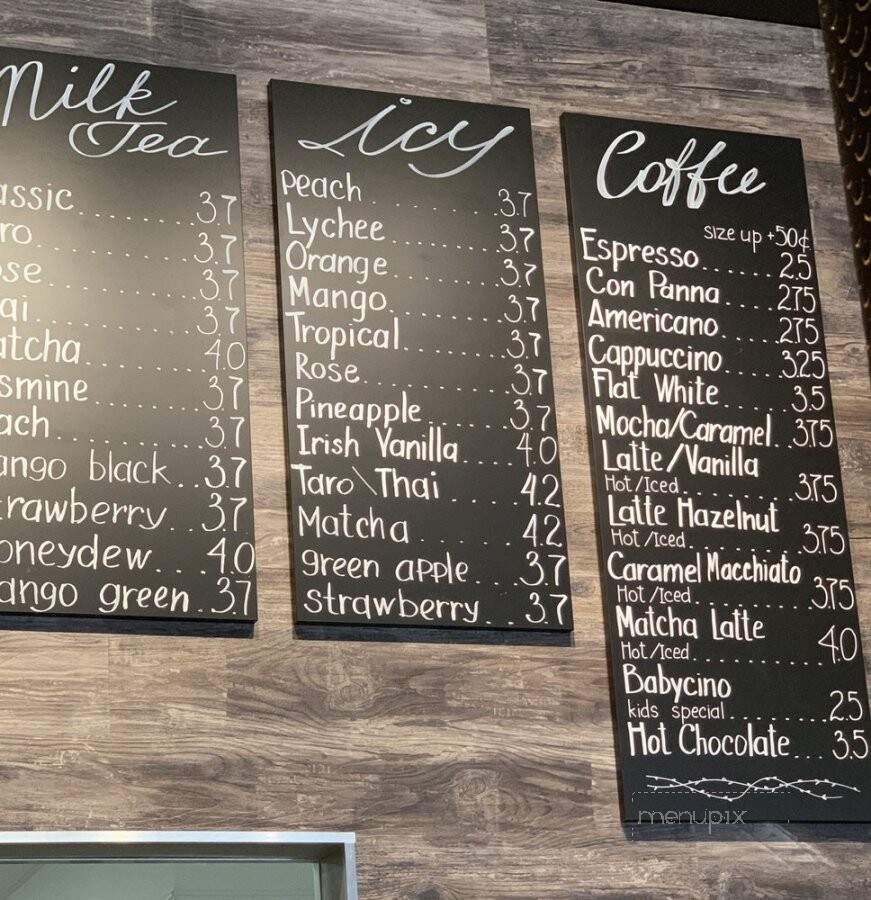 Milk
Tea
assic 3.7
ro 3.7
ose 3.7
ai 3.7
atcha 4.0
smine 3.7
ach 3.7
ango black 3.7
trawberry 3.7
oneydew 4.0
ango green 3.7
Icy
Peach 3.7
Lychee 3.7
Orange 3.7
Mango 3.7
Tropical 3.7
Rose 3.7
Pineapple 3.7
Irish Vanilla 4.0
Taro\Thai 4.2
Matcha 4.2
green apple 3.7
strawberry 3.7
Coffee
size up +50¢
Espresso 2.5
Con Panna 2.75
Americano 2.75
Cappuccino 3.25
Flat White 3.5
Mocha/Caramel 3.75
Latte/Vanilla
Hot/Iced 3.75
Latte Hazelnut
Hot/Iced 3.75
Caramel Macchiato
Hot/Iced 3.75
Matcha Latte
Hot/Iced 4.0
Babycino
kids special 2.5
Hot Chocolate 3.5
menupix